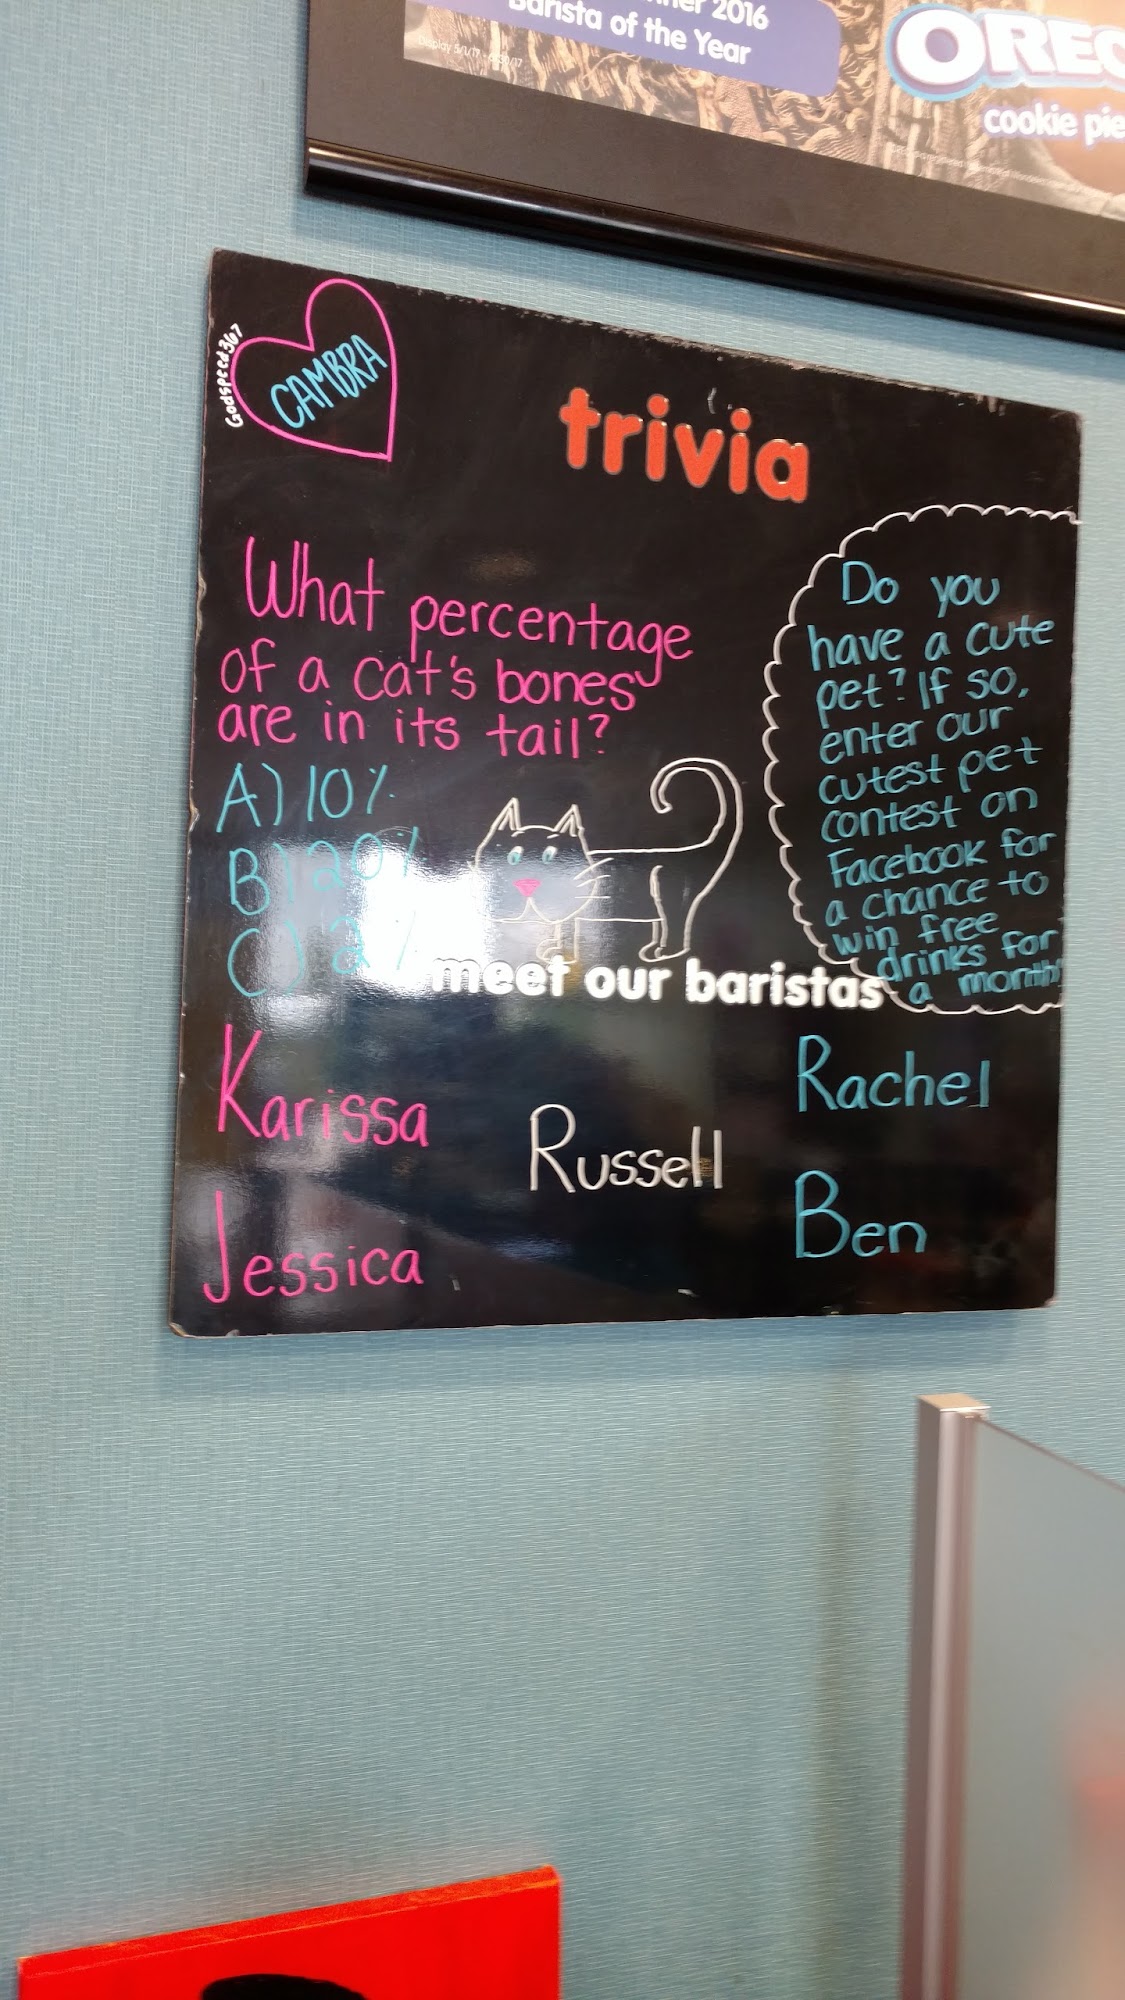 2016
Barista of the Year
Display 5/1/17 - 6/30/17
OREO
cookie pie
Godspeed367
CAMBRA
trivia
What percentage
of a cat's bones
are in its tail?
A) 10%
B) 20%
C) 2%
Do you
have a cute
pet? If so,
enter our
cutest pet
contest on
Facebook for
a chance to
win free
drinks for
a month!
meet our baristas
Karissa
Rachel
Russell
Jessica
Ben